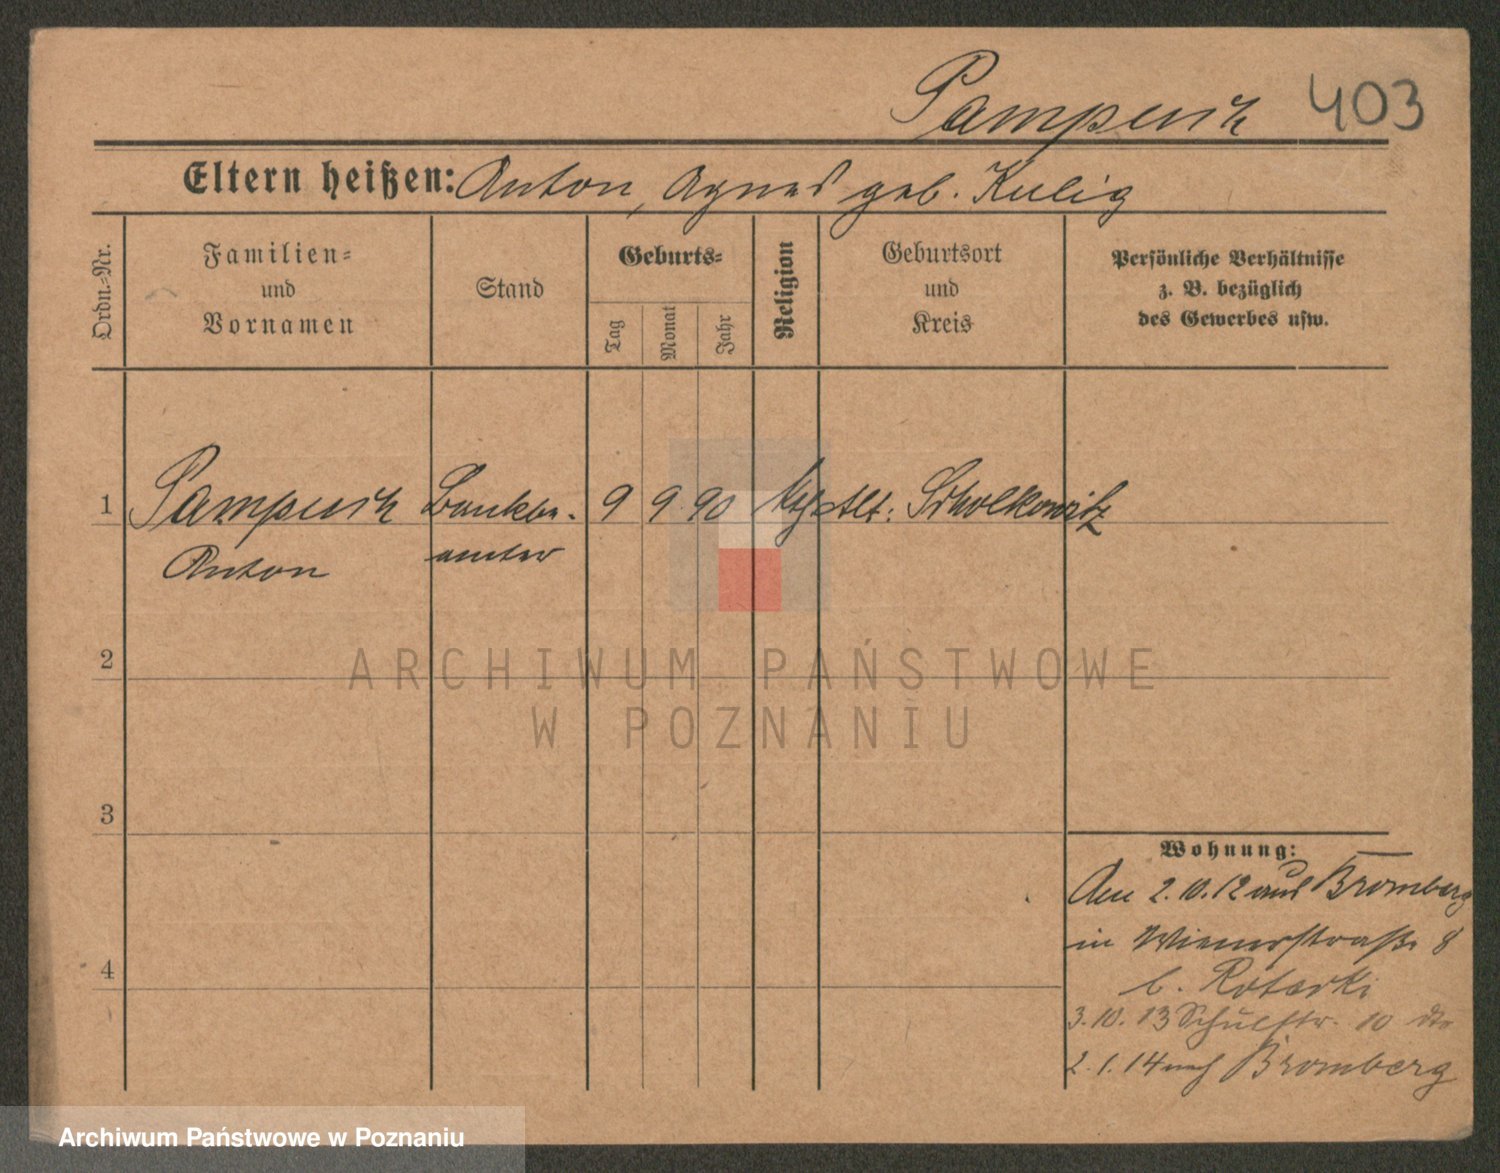 Pampuch 403
Eltern heißen: Anton, Agnes geb. Kulig
Ordn.-Nr.
Familien-
und
Vornamen
Stand
Geburts-
Tag
Monat
Jahr
Religion
Geburtsort
und
Kreis
Persönliche Verhältnisse
z. B. bezüglich
des Gewerbes usw.
1 Pampuch Bankbe- 9 9 90 kth Alt: Scholkowitz
Anton amter
2
ARCHIWUM PAŃSTWOWE
W POZNANIU
3
Wohnung:
Am 2.10.12 aus Bromberg
in Wienerstraße 8
b. Rotarki
4
3.10.13 Schulstr. 10
2.1.14 nach Bromberg
Archiwum Państwowe w Poznaniu